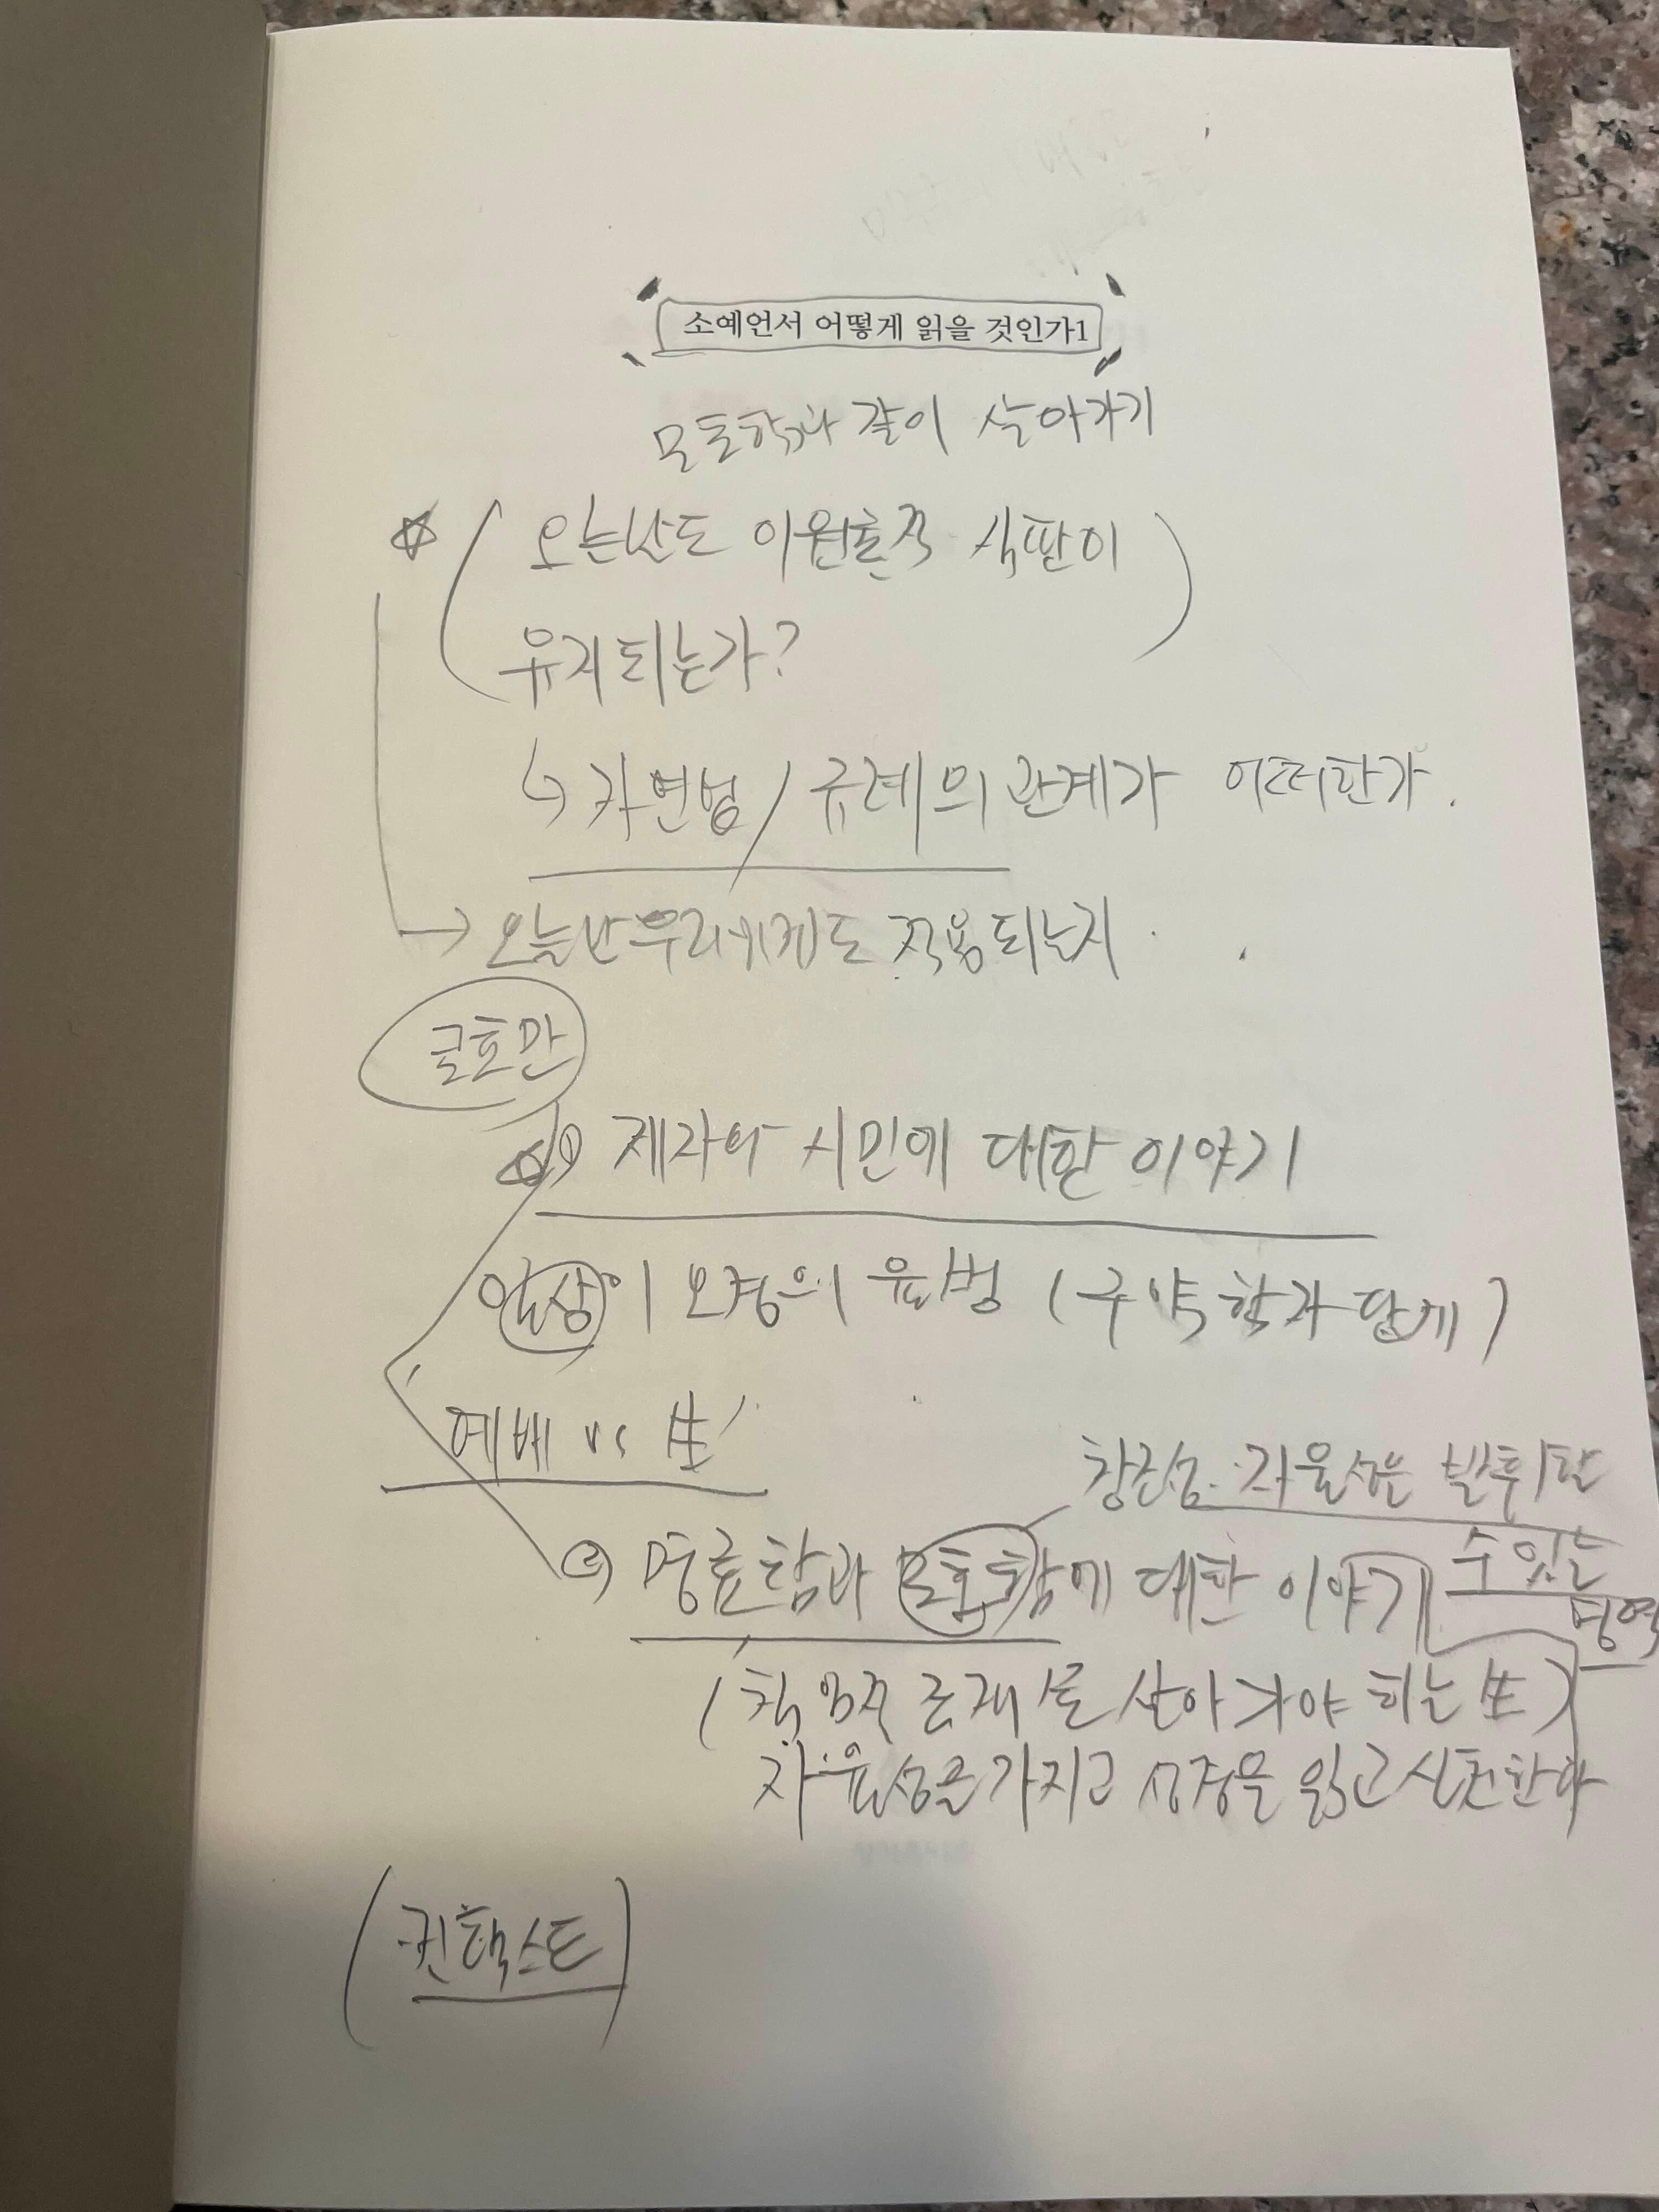 소예언서 어떻게 읽을 것인가1
모호함과 같이 살아가기
오늘날도 이원론적 심판이
유지되는가?
↳ 자연법 / 규례의 관계가 어떠한가.
→ 오늘날 우리에게도 적용되는지.
크호만
① 제자와 시민에 대한 이야기
일상이 오경의 율법 (구약학자답게)
예배 vs 生
창조성. 자율성을 발휘할
수 있는
영역
② 명료함과 모호함에 대한 이야기
(책임적 존재로 살아가야 하는 生)
자율성을 가지고 성경을 읽고 실천한다
(컨텍스트)